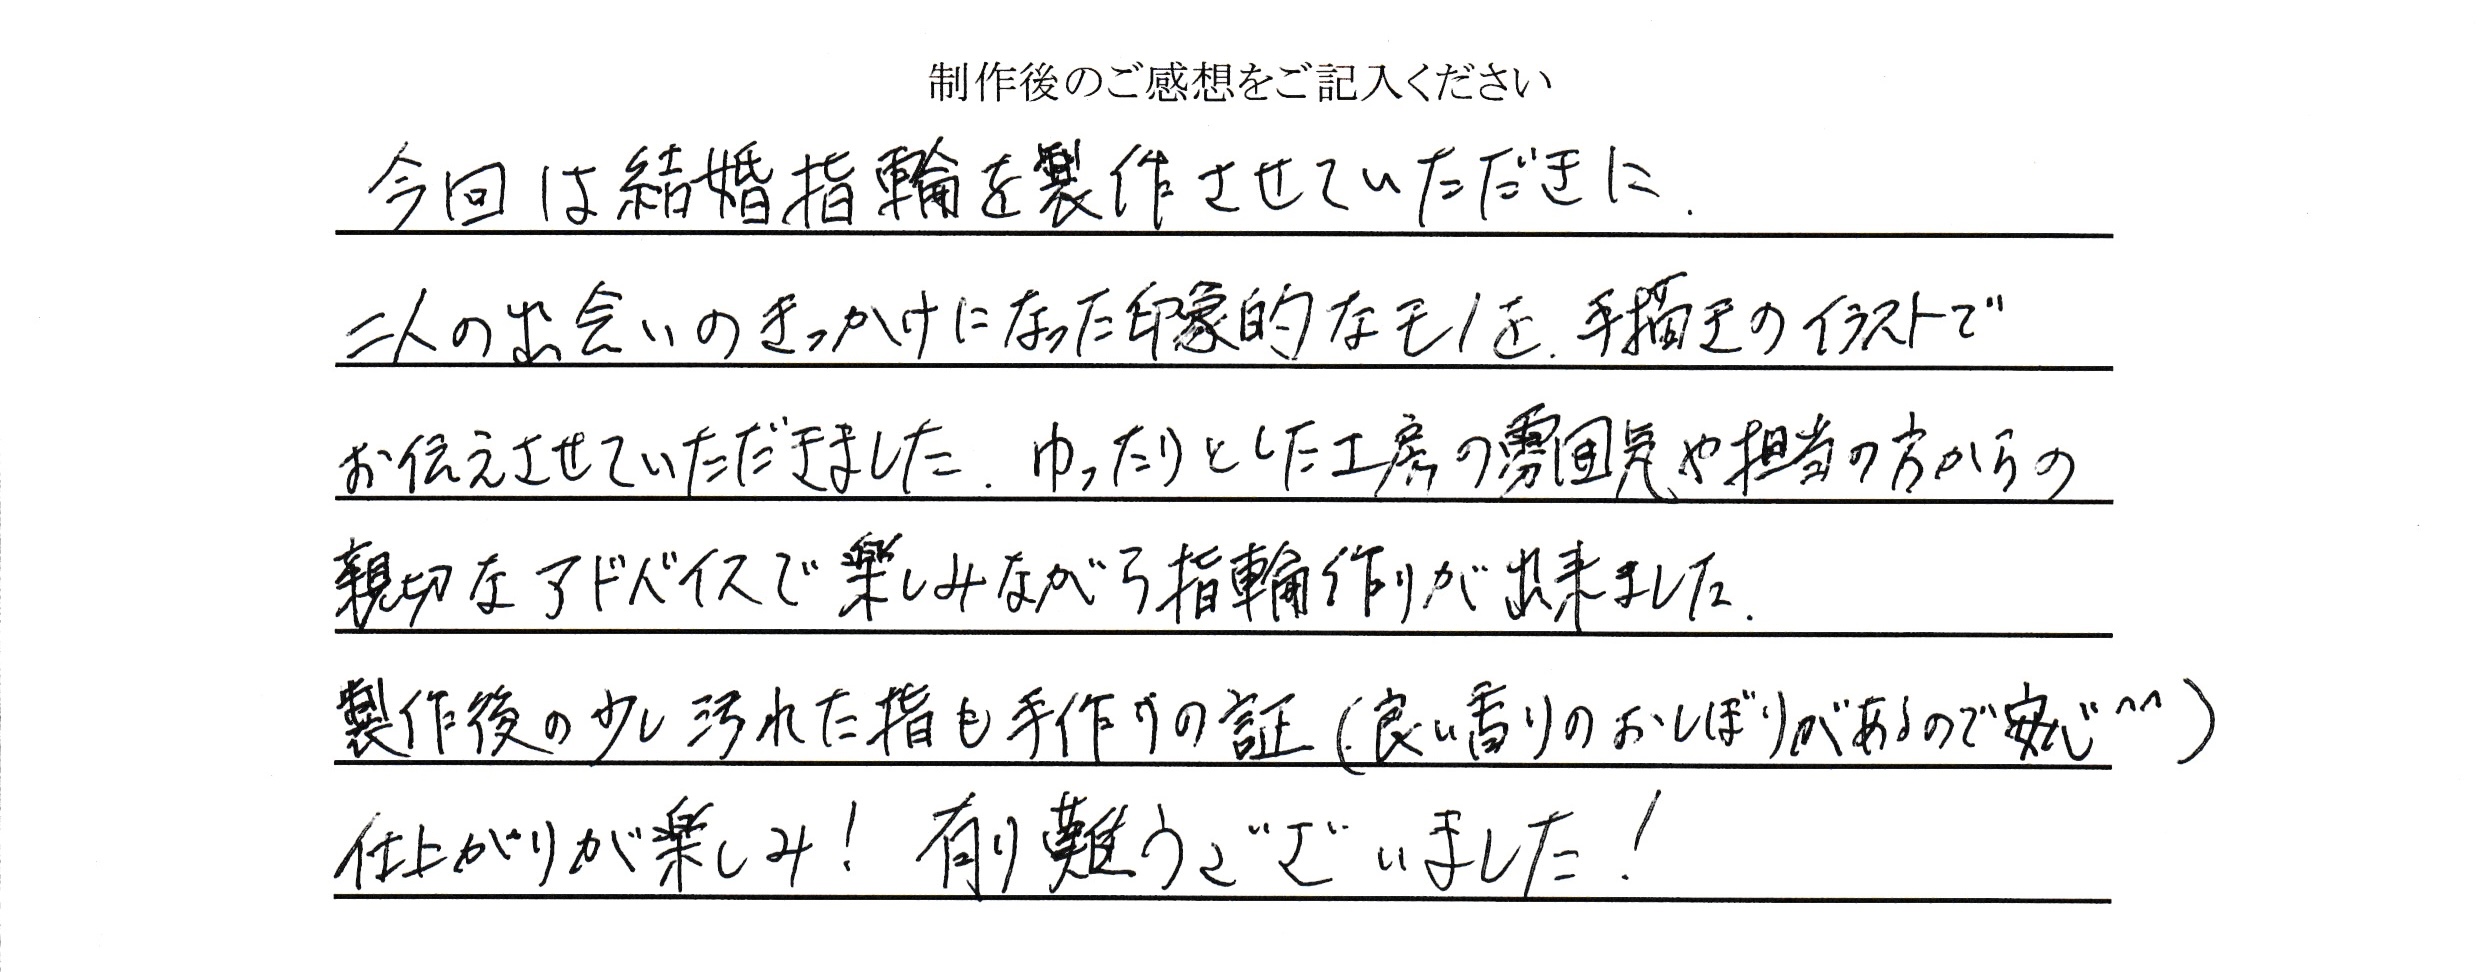 制作後のご感想をご記入ください
今回は結婚指輪を製作させていただきに、
二人の出会いのきっかけになった印象的なモノを、手描きのイラストで
お伝えさせていただきました。ゆったりとした工房の雰囲気や担当の方からの
親切なアドバイスで楽しみながら指輪作りが出来ました。
製作後の少し汚れた指も手作りの証(良い香りのおしぼりがあるので安心^^)
仕上がりが楽しみ!有り難うございました!